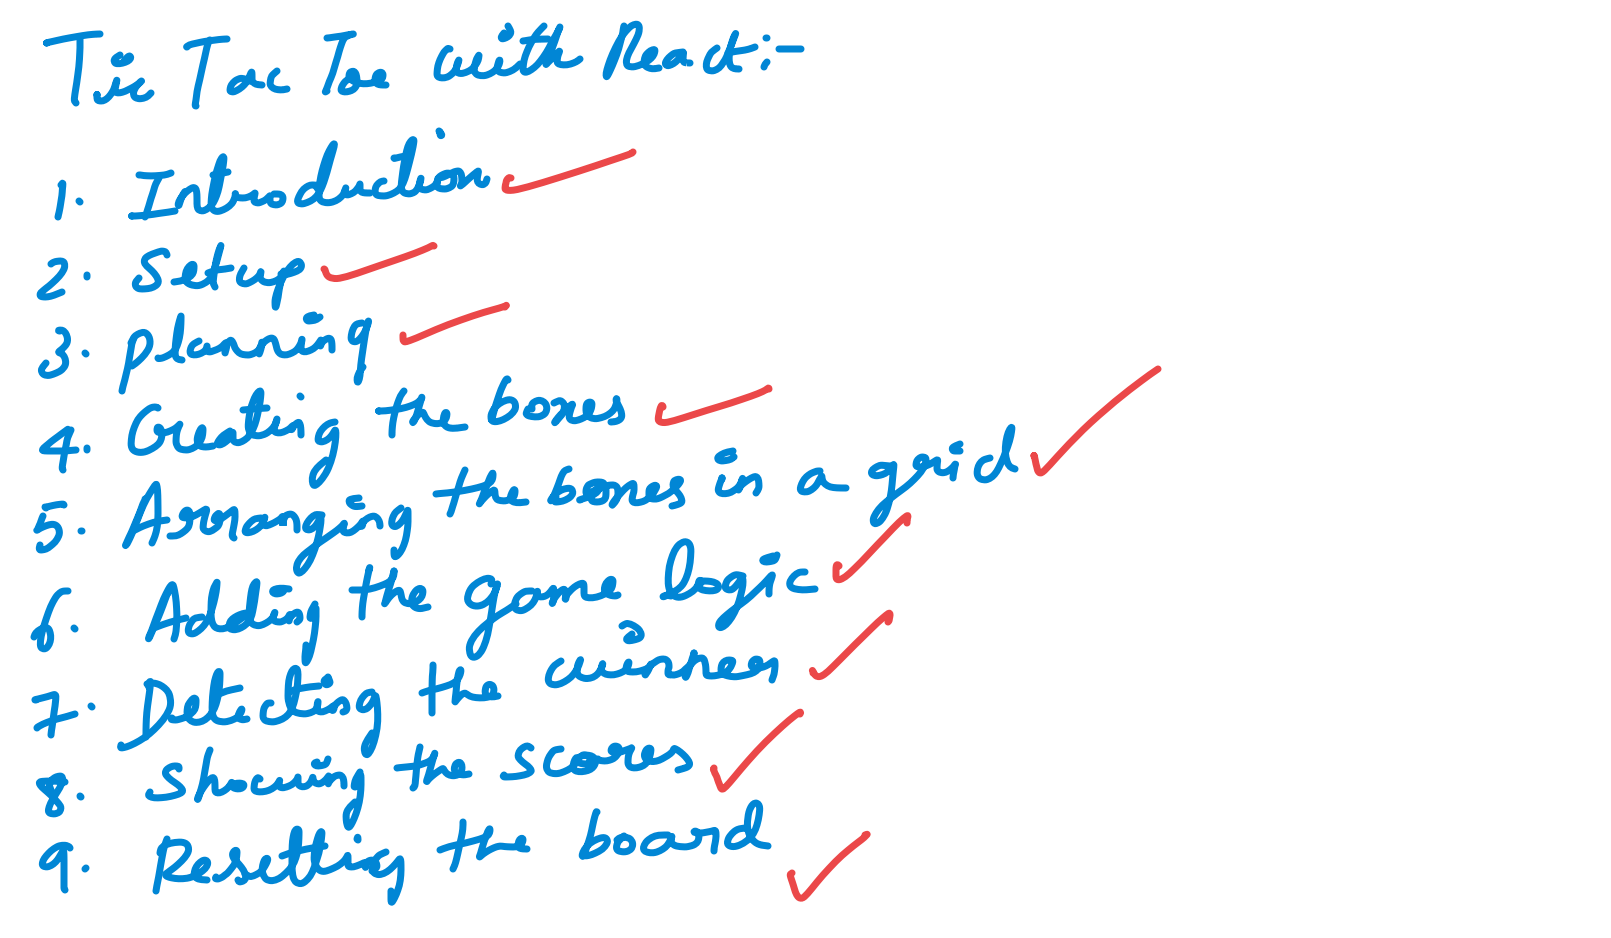 Tic Tac Toe with React:-
1. Introduction
2. Setup
3. Planning
4. Creating the boxes
5. Arranging the boxes in a grid
6. Adding the game logic
7. Detecting the winner
8. Showing the scores
9. Resetting the board